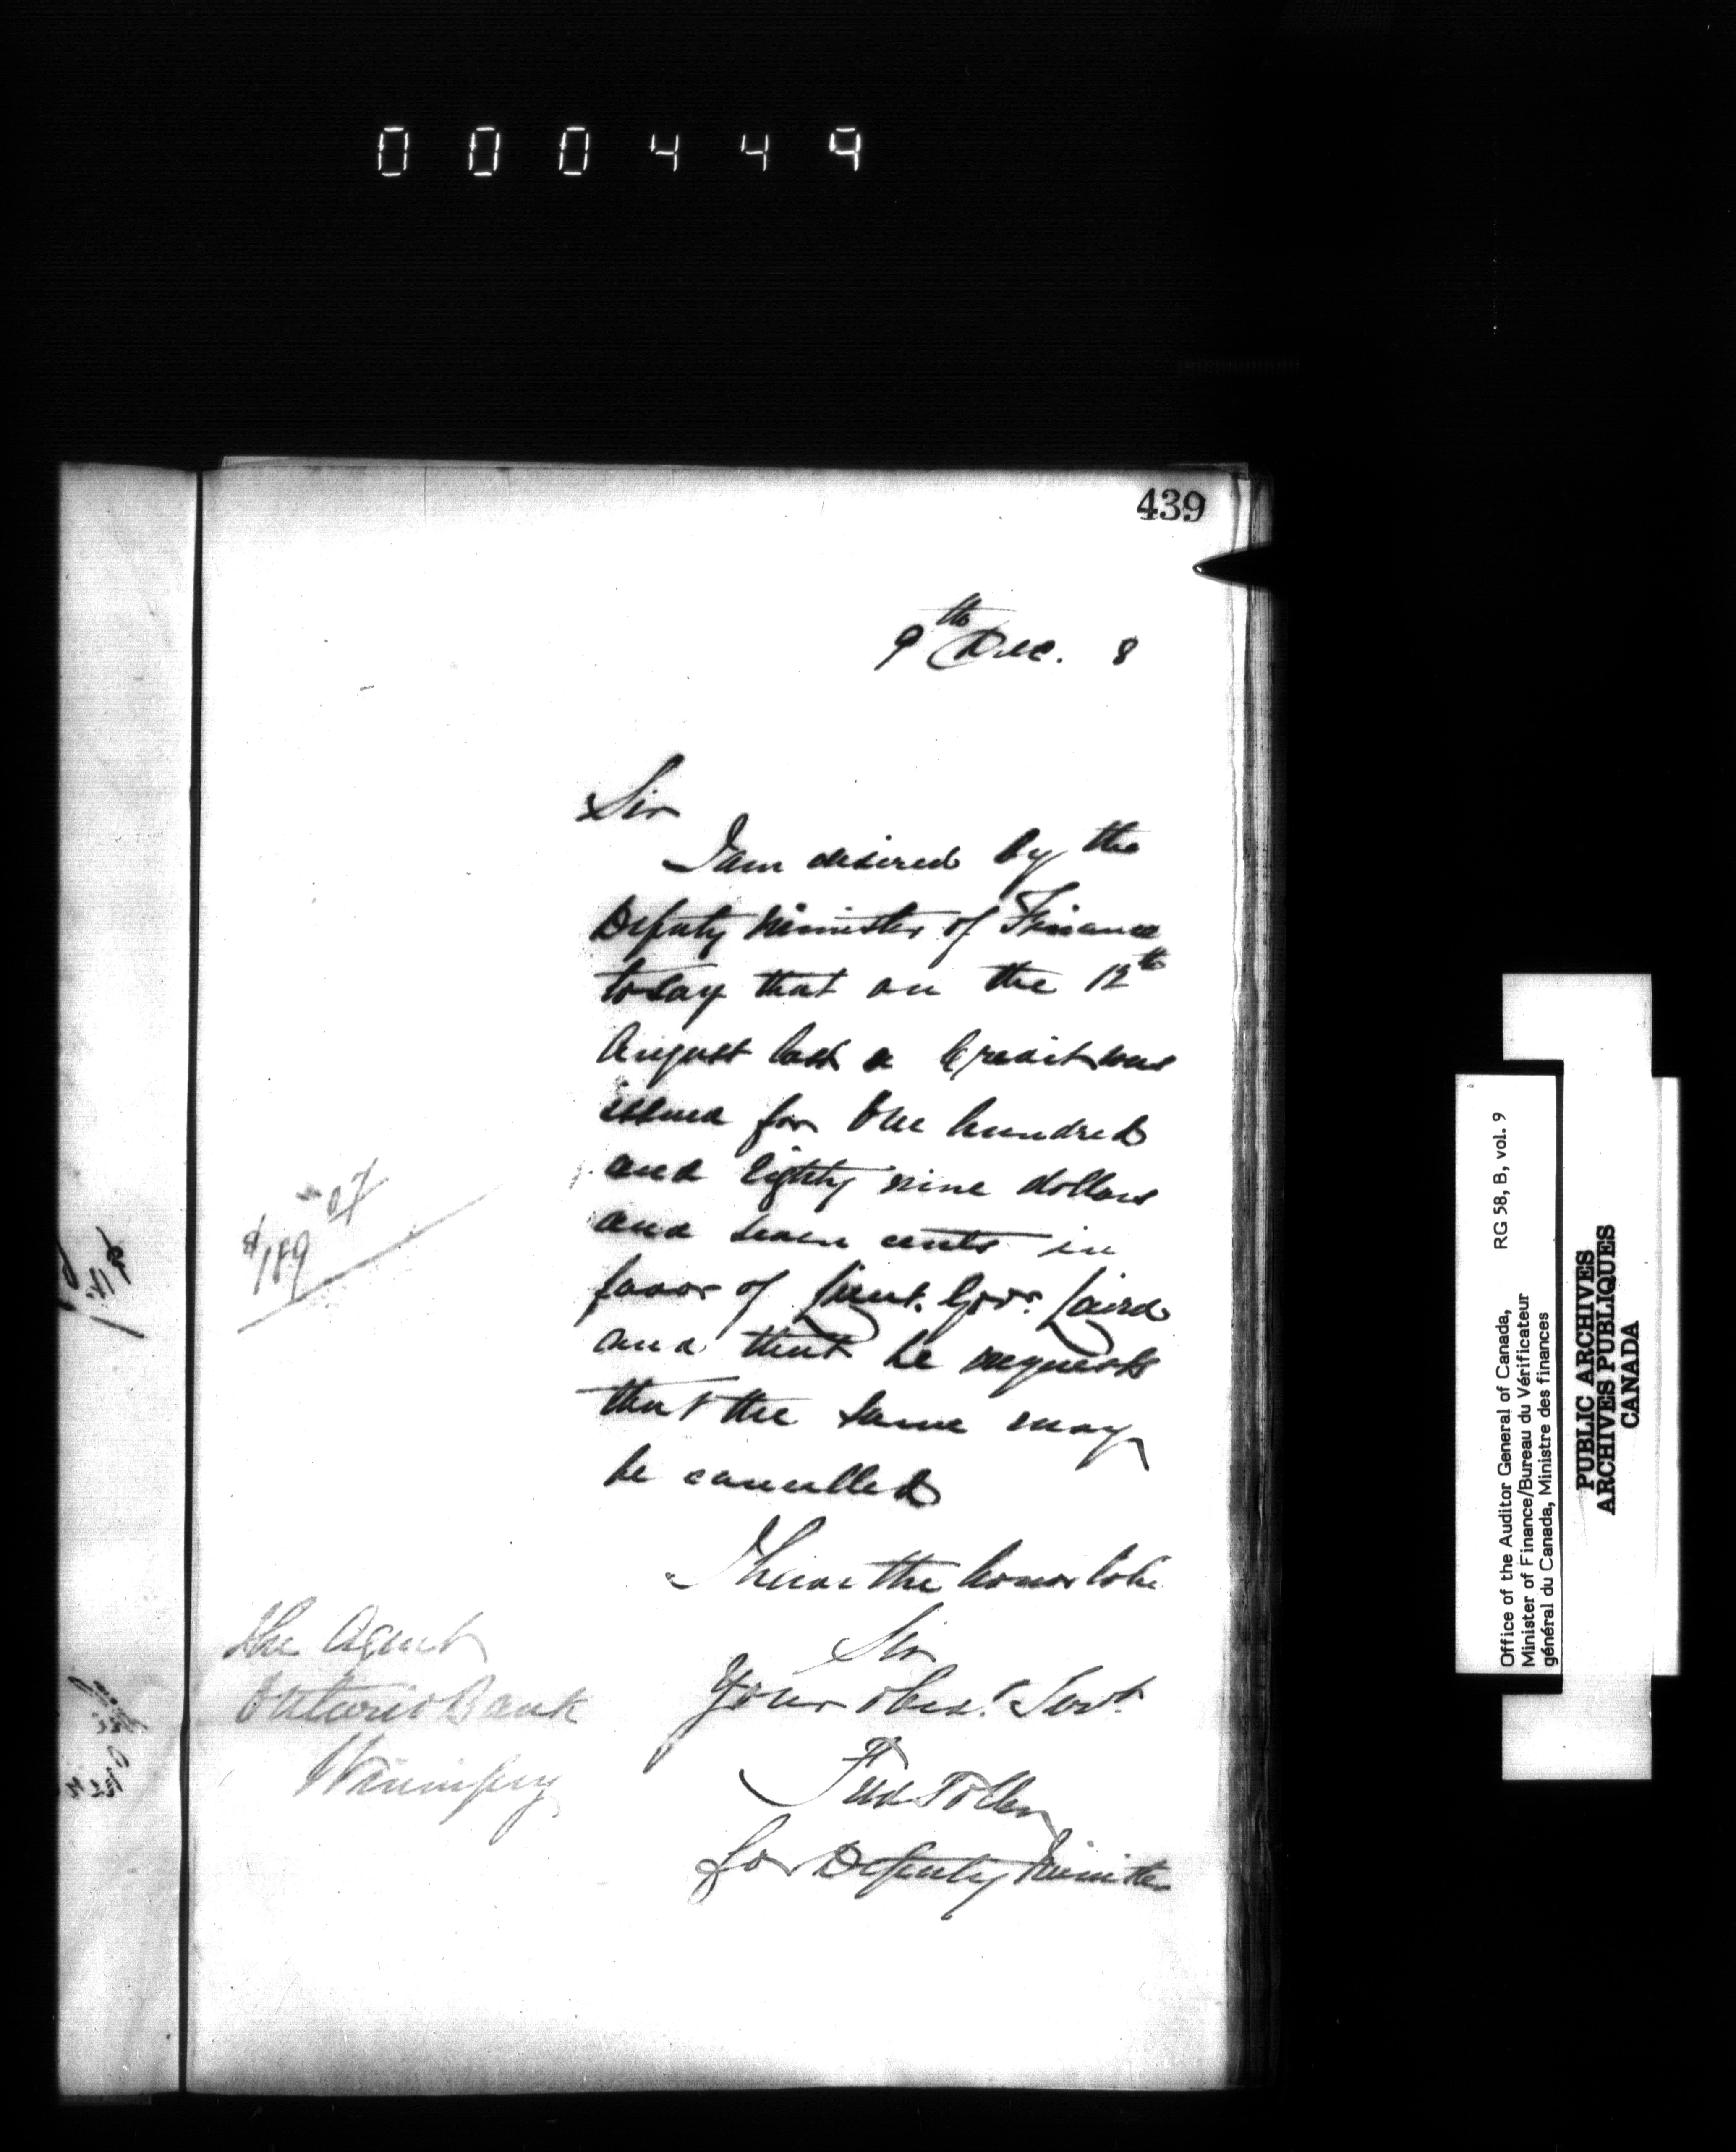 000449
439
9th Dec. 8
Sir
I am desired by the
Deputy Minister of Finance
to say that on the 12th
August last a Credit was
issued for One hundred
and Eighty nine dollars
and seven cents in
favor of Lieut. Govr. Laird
and that he requests
that the same may
be cancelled
$189 07
I have the honor to be
Sir
Your obedt. Servt.
Fred Toller
for Deputy Minister
The Agent
Ontario Bank
Winnipeg
Office of the Auditor General of Canada, RG 58, B, vol. 9
Minister of Finance/Bureau du Vérificateur
général du Canada, Ministre des finances
PUBLIC ARCHIVES
ARCHIVES PUBLIQUES
CANADA